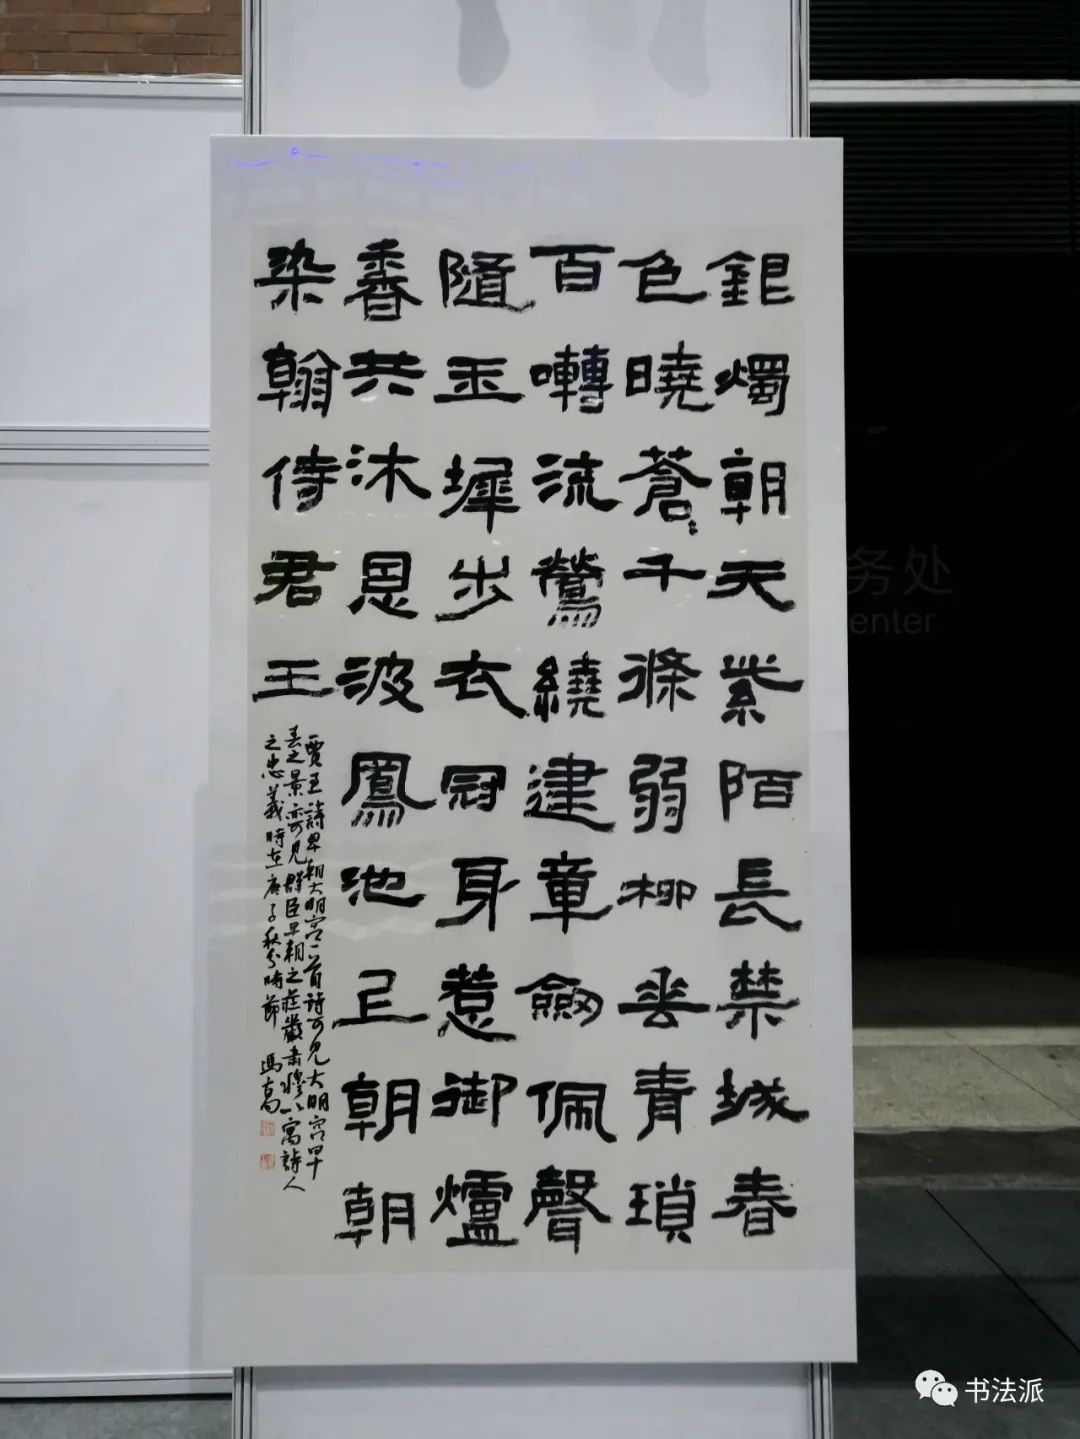 銀燭朝天紫陌長禁城春
色曉蒼〻千條弱柳垂青瑣
百囀流鶯繞建章劍佩聲
隨玉墀步衣冠身惹御爐
香共沐恩波鳳池上朝朝
染翰侍君王
賈至詩早朝大明宮一首詩可見大明宮早
春之景亦可見群臣早朝之莊嚴肅穆以寓詩人
之忠義時在庚子秋分時節 馮
务处
enter
书法派